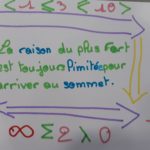 < 1 ≤ 3 ≤ 10 >
La raison du plus fort
est toujours l'imitée pour
arriver au sommet.
∞ Σ 2 λ 0